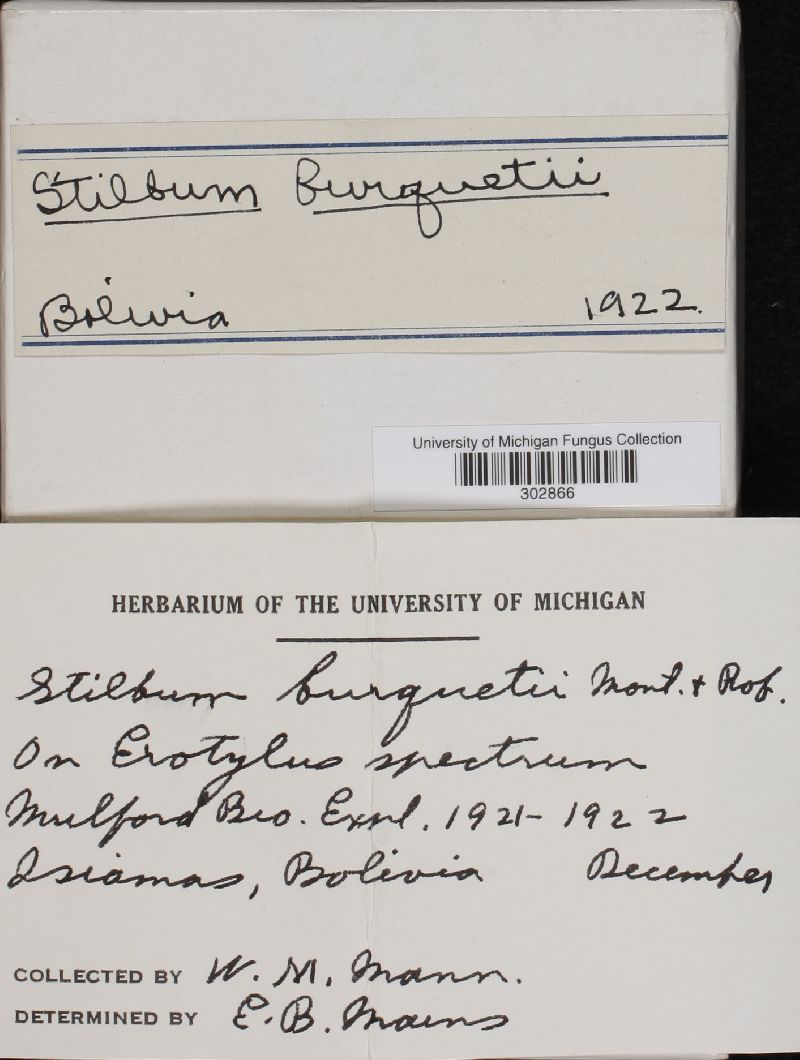 Stilbum burquetii
Bolivia 1922.
University of Michigan Fungus Collection
302866
HERBARIUM OF THE UNIVERSITY OF MICHIGAN
Stilbum burquetii Mont. & Rob.
On Erotylus spectrum
Mulford Bio. Expl. 1921-1922
Isiamas, Bolivia December
COLLECTED BY W. M. Mann.
DETERMINED BY E. B. Mains